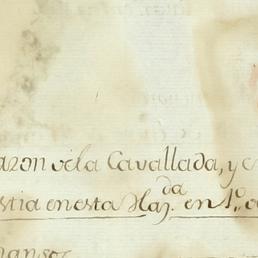 azon de la Cavallada, y e
stia en esta Haz.da en 1.o d
mansos